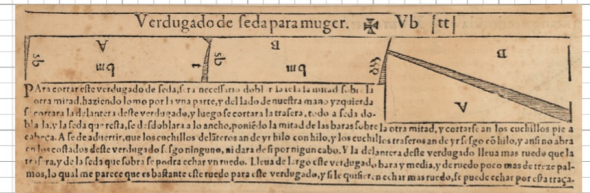 Verdugado de seda para muger. ✠ Vb ſtt
A B
bm bm
sb sb
B A
PAra cortar este verdugado de seda, sera necessario dobl r la tela la mitad sobre la
otra mitad, haziendo lomo por la vna parte, y del lado de nuestra mano yzquierda
se cortara la delantera deste verdugado, y luego se cortara la trasera, todo a seda do-
bla la, y la seda que resta, se desdoblara a lo ancho, poniēdo la mitad de las baras sobre la otra mitad, y cortarse an los cuchillos pie a
cabeça. A se de aduertir, que los cuchillos delāteros an de yr hilo con hilo, y los cuchillos traseros an de yr sesgo cō hilo, y ansi no abra
en los costados deste verdugado sesgo ninguno, ni dara de si por ningun cabo. Y la delantera deste verdugado lleua mas ruedo que la
trasera, y de la seda que sobra se podra echar vn ruedo. Lleua de largo este verdugado, bara y media, y de ruedo poco mas de treze pal-
mos, lo qual me parece que es bastante este ruedo para este verdugado, y si le quisierē echar mas ruedo, se puede echar por esta traça.